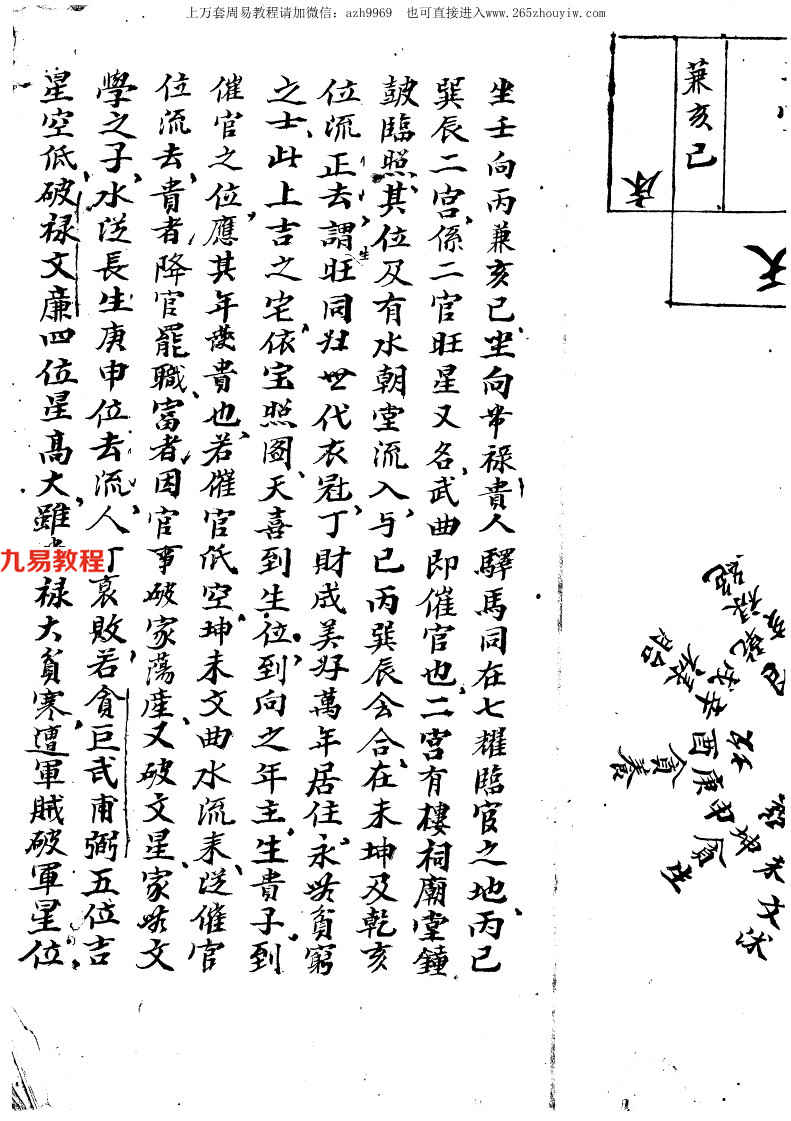 上万套周易教程请加微信：azh9969　也可直接进入www.265zhouyiw.com
兼亥巳
床
天
坐壬向丙兼亥巳坐向帯禄貴人驛馬同在七耀臨官之地丙巳
巽辰二宫係二官旺星又名武曲即催官也二宫有樓祠廟堂鐘
皷臨照其位及有水朝堂流入与巳丙巽辰会合在未坤及乾亥
位流正去謂生旺同归世代衣冠丁財成美好萬年居住永無貧窮
之士此上吉之宅依宝照图天喜到生位到向之年主生貴子到
催官之位應其年發貴也若催官低空坤未文曲水流来從催官
位流去貴者降官罷職富者因官事破家蕩産又破文星家無文
學之子水從長生庚申位去流人丁衰敗若貪巨武甫弼五位吉
星空低破禄文廉四位星高大雖禄大貧寒遭軍賊破軍星位
九易教程
未文
坤申貪生
庚酉貪養
辛戌禄胎
乾亥禄